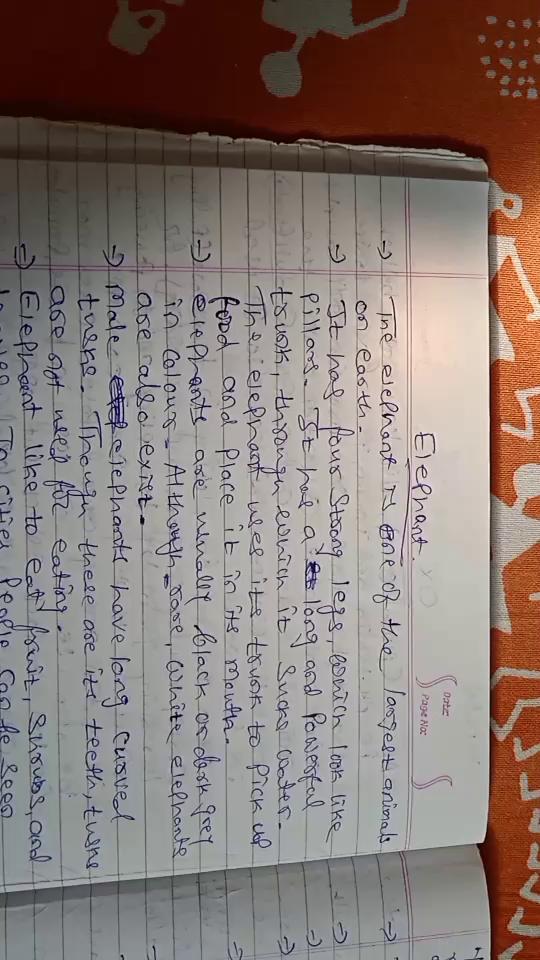 Date
Page No:
Elephant.
→ The elephant is one of the largest animals
on earth.
→ It has four strong legs, which look like
pillars. It has a long and powerful
trunk, through which it sucks water.
The elephant uses its trunk to pick up
food and place it in its mouth.
→ elephants are usually black or dark grey
in colour. Although rare, white elephants
are also exist.
→ Male elephants have long curved
tusks. Though these are its teeth, tusks
are not used for eating.
→ Elephant like to eat fruit, shrubs, and
In cities people can be seen